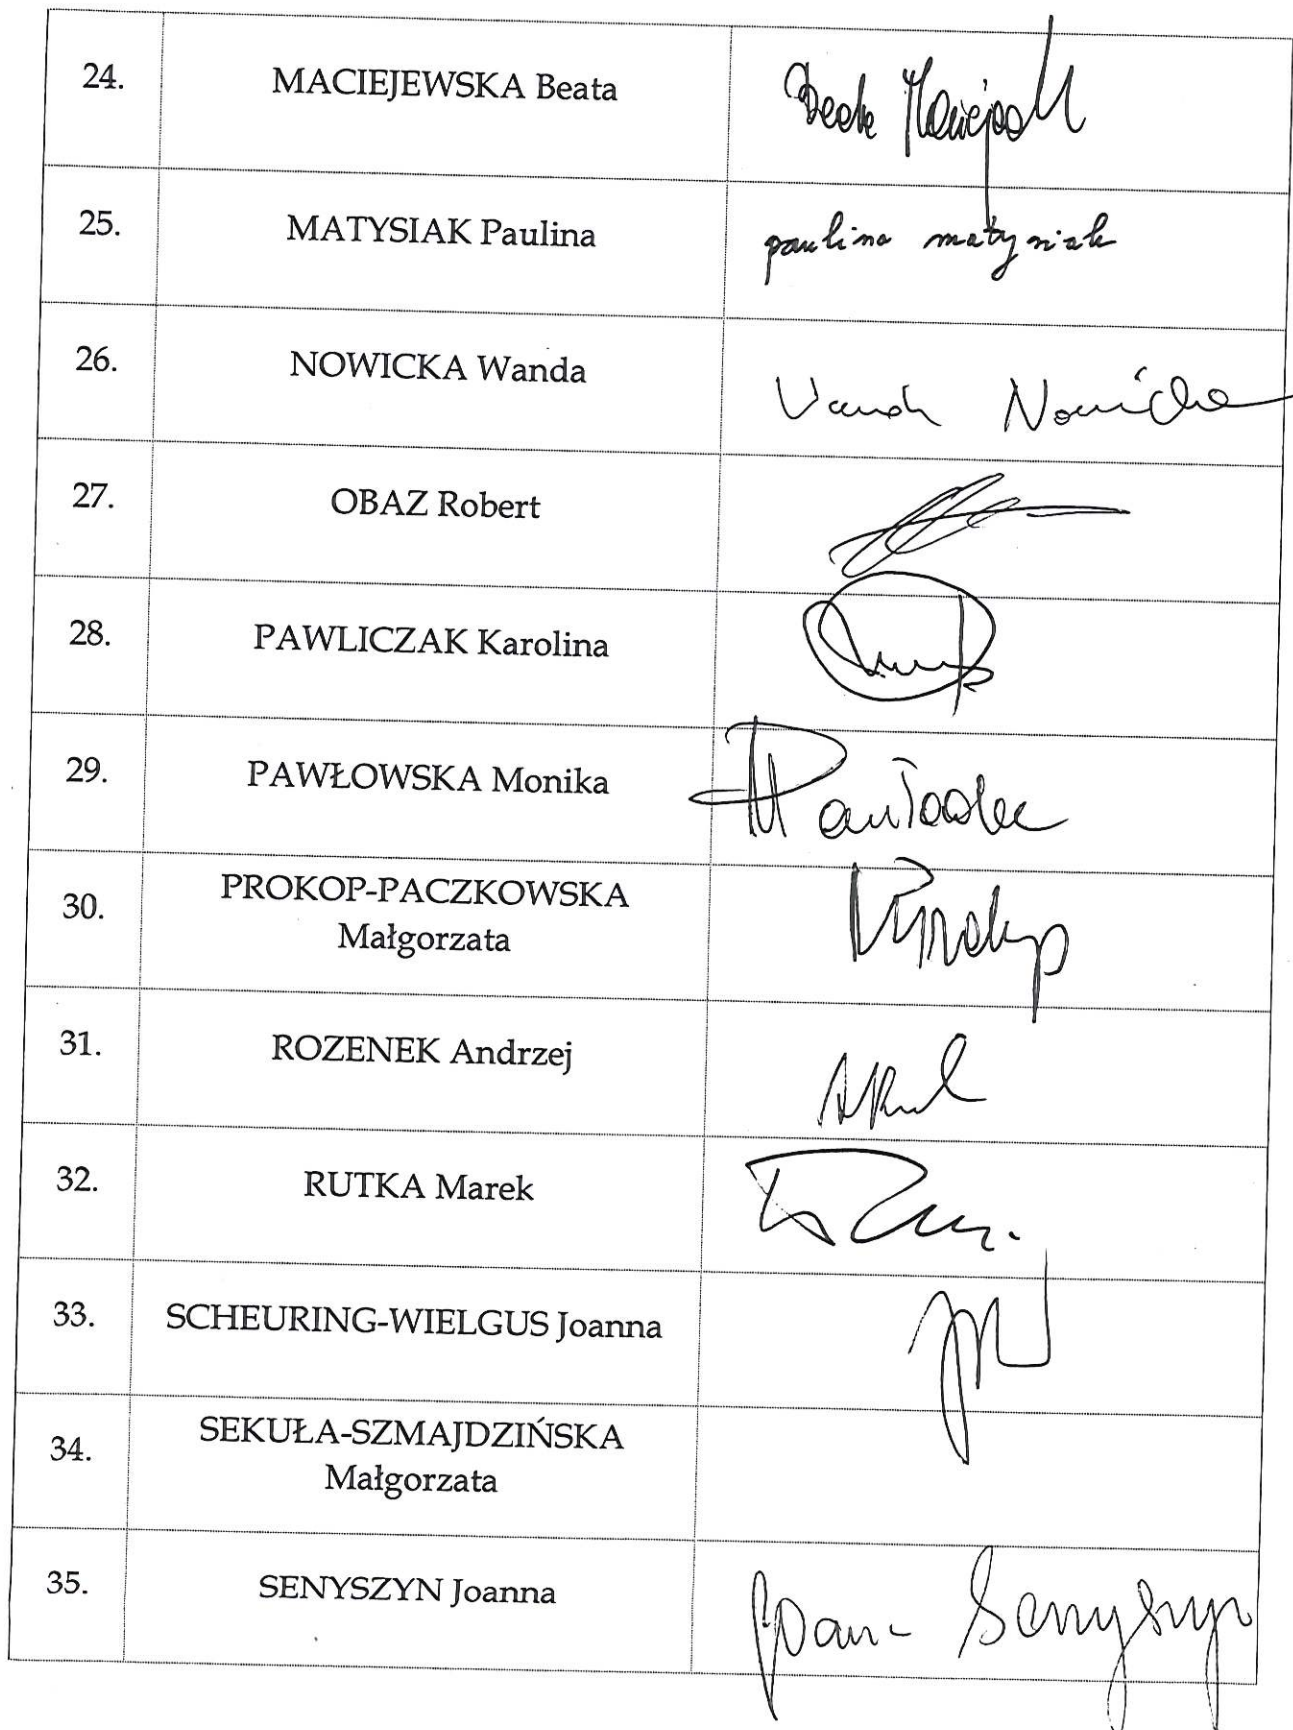 24. MACIEJEWSKA Beata
25. MATYSIAK Paulina paulina matysiak
26. NOWICKA Wanda Wanda Nowicka
27. OBAZ Robert
28. PAWLICZAK Karolina
29. PAWŁOWSKA Monika
30. PROKOP-PACZKOWSKA
Małgorzata
31. ROZENEK Andrzej
32. RUTKA Marek
33. SCHEURING-WIELGUS Joanna
34. SEKUŁA-SZMAJDZIŃSKA
Małgorzata
35. SENYSZYN Joanna Senyszyn